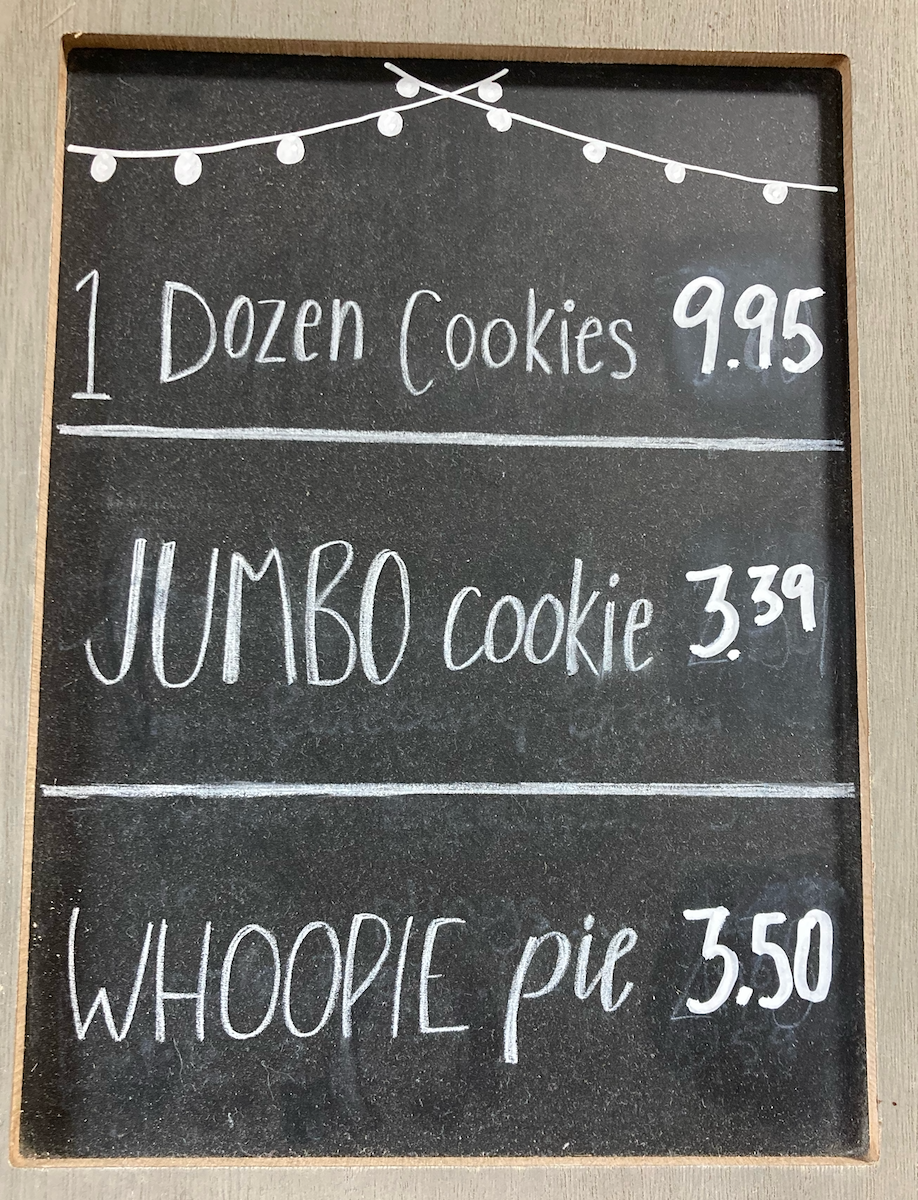 1 Dozen Cookies 9.95
JUMBO cookie 3.39
WHOOPIE pie 3.50